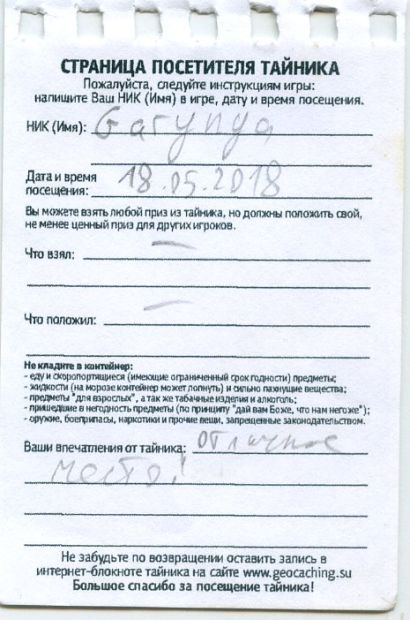 СТРАНИЦА ПОСЕТИТЕЛЯ ТАЙНИКА
Пожалуйста, следуйте инструкциям игры:
напишите Ваш НИК (Имя) в игре, дату и время посещения.
НИК (Имя): багунда
Дата и время
посещения: 18.05.2018
Вы можете взять любой приз из тайника, но должны положить свой,
не менее ценный приз для других игроков.
Что взял: —
Что положил: —
Не кладите в контейнер:
- еду и скоропортящиеся (имеющие ограниченный срок годности) предметы;
- жидкости (на морозе контейнер может лопнуть) и сильно пахнущие вещества;
- предметы "для взрослых", а так же табачные изделия и алкоголь;
- пришедшие в негодность предметы (по принципу "дай вам Боже, что нам негоже");
- оружие, боеприпасы, наркотики и прочие вещи, запрещенные законодательством.
Ваши впечатления от тайника: отличное
место!
Не забудьте по возвращении оставить запись в
интернет-блокноте тайника на сайте www.geocaching.su
Большое спасибо за посещение тайника!